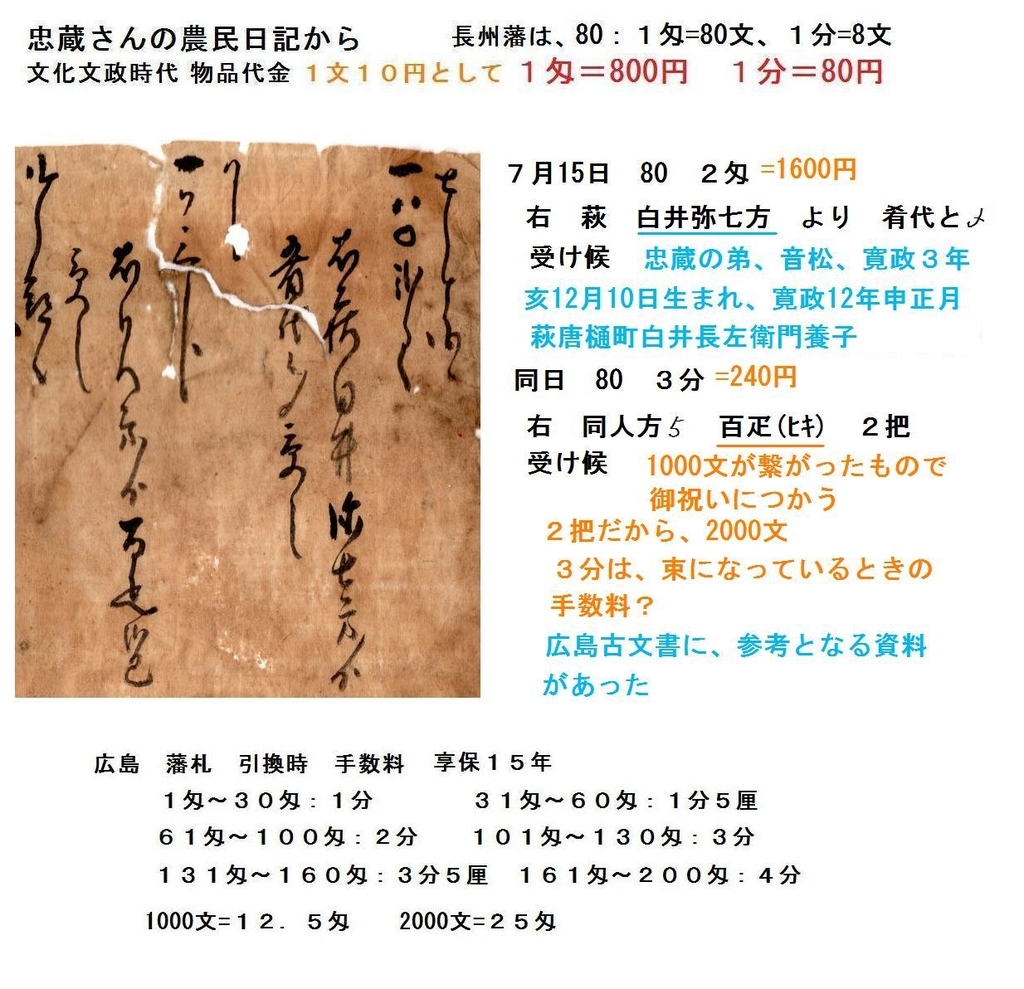 忠蔵さんの農民日記から　　長州藩は、80：１匁=80文、１分=8文
文化文政時代 物品代金 １文１０円として １匁＝800円　１分＝80円
７月15日　80　２匁 =1600円
右　萩　白井弥七方　より　肴代と〆
受け候　忠蔵の弟、音松、寛政３年
亥12月10日生まれ、寛政12年申正月
萩唐樋町白井長左衛門養子
同日　80　３分 =240円
右　同人方ゟ　百疋(ﾋｷ)　２把
受け候　1000文が繋がったもので
御祝いにつかう
２把だから、2000文
３分は、束になっているときの
手数料？
広島古文書に、参考となる資料
があった
広島　藩札　引換時　手数料　享保１５年
１匁～３０匁：１分　　３１匁～６０匁：１分５厘
６１匁～１００匁：２分　　１０１匁～１３０匁：３分
１３１匁～１６０匁：３分５厘　１６１匁～２００匁：４分
1000文=１２．５匁　　2000文=２５匁